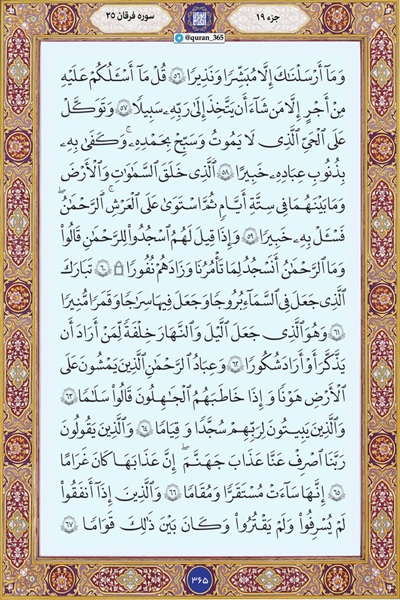 جزء ۱۹
@quran_365
سوره فرقان ۲۵
وَمَآ أَرْسَلْنَٰكَ إِلَّا مُبَشِّرًا وَنَذِيرًا ۵۶ قُلْ مَآ أَسْـَٔلُكُمْ عَلَيْهِ
مِنْ أَجْرٍ إِلَّا مَن شَآءَ أَن يَتَّخِذَ إِلَىٰ رَبِّهِۦ سَبِيلًا ۵۷ وَتَوَكَّلْ
عَلَى الْحَىِّ الَّذِى لَا يَمُوتُ وَسَبِّحْ بِحَمْدِهِۦ وَكَفَىٰ بِهِۦ
بِذُنُوبِ عِبَادِهِۦ خَبِيرًا ۵۸ الَّذِى خَلَقَ السَّمَٰوَٰتِ وَالْأَرْضَ
وَمَا بَيْنَهُمَا فِى سِتَّةِ أَيَّامٍ ثُمَّ اسْتَوَىٰ عَلَى الْعَرْشِ ۚ الرَّحْمَٰنُ
فَسْـَٔلْ بِهِۦ خَبِيرًا ۵۹ وَإِذَا قِيلَ لَهُمُ اسْجُدُوا لِلرَّحْمَٰنِ قَالُوا
وَمَا الرَّحْمَٰنُ أَنَسْجُدُ لِمَا تَأْمُرُنَا وَزَادَهُمْ نُفُورًا ۩ ۶۰ تَبَارَكَ
الَّذِى جَعَلَ فِى السَّمَآءِ بُرُوجًا وَجَعَلَ فِيهَا سِرَاجًا وَقَمَرًا مُّنِيرًا
۶۱ وَهُوَ الَّذِى جَعَلَ الَّيْلَ وَالنَّهَارَ خِلْفَةً لِّمَنْ أَرَادَ أَن
يَذَّكَّرَ أَوْ أَرَادَ شُكُورًا ۶۲ وَعِبَادُ الرَّحْمَٰنِ الَّذِينَ يَمْشُونَ عَلَى
الْأَرْضِ هَوْنًا وَإِذَا خَاطَبَهُمُ الْجَٰهِلُونَ قَالُوا سَلَٰمًا ۶۳
وَالَّذِينَ يَبِيتُونَ لِرَبِّهِمْ سُجَّدًا وَقِيَامًا ۶۴ وَالَّذِينَ يَقُولُونَ
رَبَّنَا اصْرِفْ عَنَّا عَذَابَ جَهَنَّمَ ۖ إِنَّ عَذَابَهَا كَانَ غَرَامًا
۶۵ إِنَّهَا سَآءَتْ مُسْتَقَرًّا وَمُقَامًا ۶۶ وَالَّذِينَ إِذَآ أَنفَقُوا
لَمْ يُسْرِفُوا وَلَمْ يَقْتُرُوا وَكَانَ بَيْنَ ذَٰلِكَ قَوَامًا ۶۷
۳۶۵